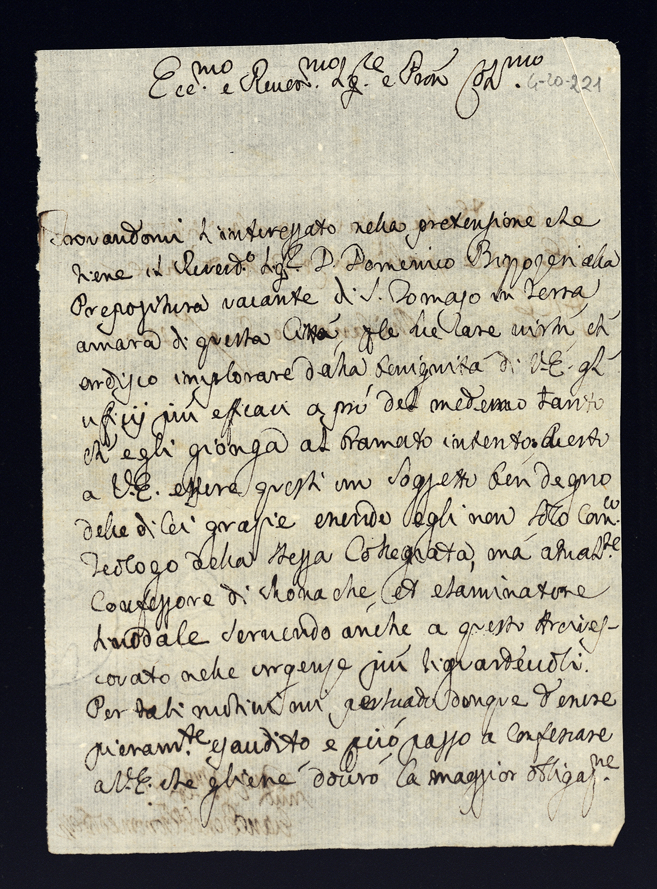 Ecc.mo e Rever.mo Sig.re e Pron Col.mo
4-20-221
Trovandomi io interessato nella pretensione che
tiene il Reverd.o Sig.r D. Domenico Bizozeri alla
Prepositura vacante di S. Tomaso in Terra
amara di questa Città, per le sue rare virtù, ch'
ardisco implorare dalla benignità di V.E. gl'
ufficij più efficaci a prò del medemo tanto
ch'egli gionga al bramato intento. Questo
a V.E. essere questi un Soggetto ben degno
delle di lei grazie essendo egli non solo Can.co
Teologo della stessa Collegiata, mà attualm.te
Confessore di Monache, et esaminatore
Sinodale servendo anche a questo Arcives-
covato nelle urgenze più riguardevoli.
Per tali motivi mi persuado donque d'essere
pieram.te esaudito e perciò passo a confessare
a V.E. che gliene dovrò la maggior obligaz.ne